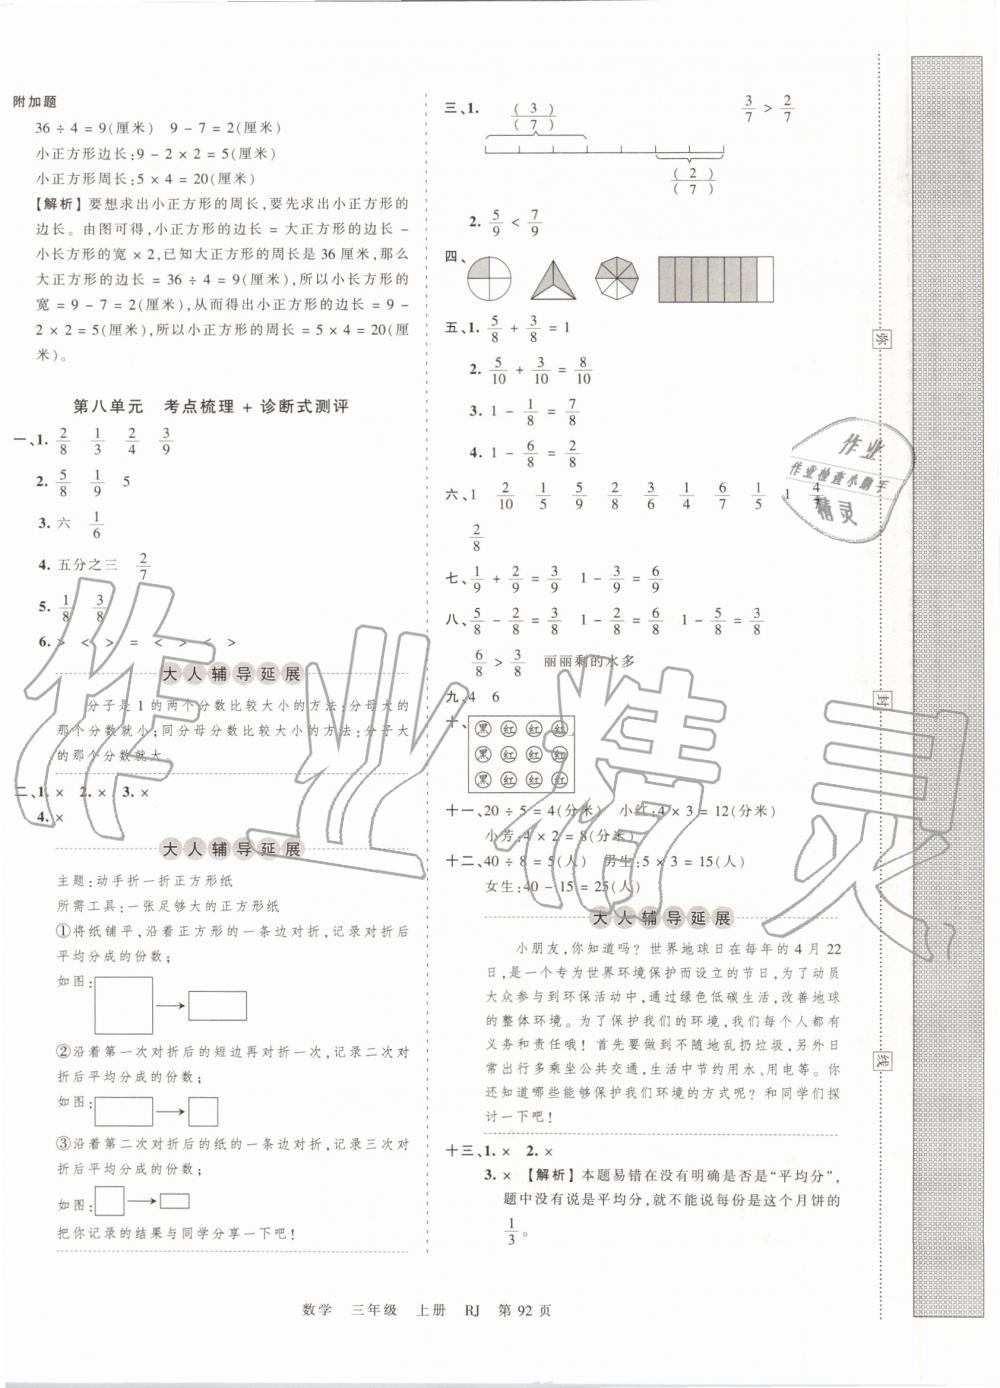 附加题
36 ÷ 4 = 9(厘米)　9 - 7 = 2(厘米)
小正方形边长:9 - 2 × 2 = 5(厘米)
小正方形周长:5 × 4 = 20(厘米)
【解析】要想求出小正方形的周长,要先求出小正方形的
边长。由图可得,小正方形的边长 = 大正方形的边长 -
小长方形的宽 × 2,已知大正方形的周长是 36 厘米,那么
大正方形的边长 = 36 ÷ 4 = 9(厘米),所以小长方形的
宽 = 9 - 7 = 2(厘米),从而得出小正方形的边长 = 9 -
2 × 2 = 5(厘米),所以小正方形的周长 = 5 × 4 = 20(厘
米)。
第八单元　考点梳理 + 诊断式测评
一、1. 2/8　1/3　2/4　3/9
2. 5/8　1/9　5
3. 六　1/6
4. 五分之三　2/7
5. 1/8　3/8
6. >　<　>　=　<　>　<　>
大人辅导延展
分子是 1 的两个分数比较大小的方法:分母大的
那个分数就小;同分母分数比较大小的方法:分子大
的那个分数就大。
二、1. ×　2. ×　3. ×
4. ×
大人辅导延展
主题:动手折一折正方形纸
所需工具:一张足够大的正方形纸
①将纸铺平,沿着正方形的一条边对折,记录对折后
平均分成的份数;
如图:
②沿着第一次对折后的短边再对折一次,记录二次对
折后平均分成的份数;
如图:
③沿着第二次对折后的纸的一条边对折,记录三次对
折后平均分成的份数;
如图:
把你记录的结果与同学分享一下吧!
三、1. (3)/(7)　3/7 > 2/7
(2)/(7)
2. 5/9 < 7/9
四、
五、1. 5/8 + 3/8 = 1
2. 5/10 + 3/10 = 8/10
3. 1 - 1/8 = 7/8
4. 1 - 6/8 = 2/8
六、1　2/10　1/5　5/9　2/8　3/6　1/4　6/7　1/5　1　4/
2/8
七、1/9 + 2/9 = 3/9　1 - 3/9 = 6/9
八、5/8 - 2/8 = 3/8　1 - 2/8 = 6/8　1 - 5/8 = 3/8
6/8 > 3/8　丽丽剩的水多
九、4　6
十、黑 红 红 红
黑 红 红 红
黑 红 红 红
十一、20 ÷ 5 = 4(分米)　小红:4 × 3 = 12(分米)
小芳:4 × 2 = 8(分米)
十二、40 ÷ 8 = 5(人)　男生:5 × 3 = 15(人)
女生:40 - 15 = 25(人)
大人辅导延展
小朋友,你知道吗? 世界地球日在每年的 4 月 22
日,是一个专为世界环境保护而设立的节日,为了动员
大众参与到环保活动中,通过绿色低碳生活,改善地球
的整体环境。为了保护我们的环境,我们每个人都有
义务和责任哦! 首先要做到不随地乱扔垃圾,另外日
常出行多乘坐公共交通,生活中节约用水、用电等。你
还知道哪些能够保护我们环境的方式呢? 和同学们探
讨一下吧!
十三、1. ×　2. ×
3. ×　【解析】本题易错在没有明确是否是“平均分”,
题中没有说是平均分,就不能说每份是这个月饼的
1/3。
弥
封
线
作业
作业检查小助手
精灵
作业精灵
数学　三年级　上册　RJ　第 92 页